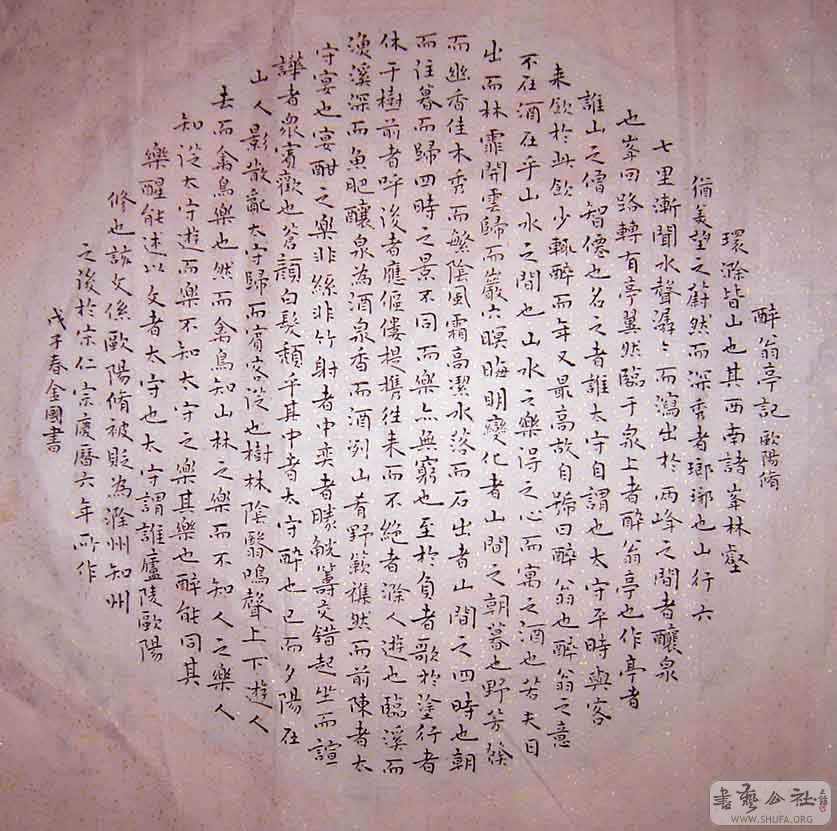 醉翁亭記 歐陽脩
環滁皆山也其西南諸峯林壑
偹美望之蔚然而深秀者瑯琊也山行六
七里漸聞水聲潺々而瀉出於兩峰之間者釀泉
也峯回路轉有亭翼然臨于泉上者醉翁亭也作亭者
誰山之僧智僊也名之者誰太守自謂也太守平時與客
来飲於此飲少輒醉而年又最高故自號曰醉翁也醉翁之意
不在酒在乎山水之間也山水之樂得之心而寓之酒也若夫日
出而林霏開雲歸而巖穴暝晦明變化者山間之朝暮也野芳發
而幽香佳木秀而繁陰風霜高潔水落而石出者山間之四時也朝
而往暮而歸四時之景不同而樂亦無窮也至於負者歌於塗行者
休于樹前者呼後者應傴僂提攜往来而不絕者滁人遊也臨溪而
漁溪深而魚肥釀泉為酒泉香而酒洌山肴野簌襍然而前陳者太
守宴也宴酣之樂非絲非竹射者中奕者勝觥籌交錯起坐而諠
譁者衆賓歡也蒼顏白髮頹乎其中者太守醉也已而夕陽在
山人影散亂太守歸而賓客從也樹林陰翳鳴聲上下遊人
去而禽鳥樂也然而禽鳥知山林之樂而不知人之樂人
知從太守遊而樂不知太守之樂其樂也醉能同其
樂醒能述以文者太守也太守謂誰廬陵歐陽
修也該文係歐陽脩被貶為滁州知州
之後於宋仁宗慶曆六年所作
戊子春金國書
書藝公社
WWW.SHUFA.ORG